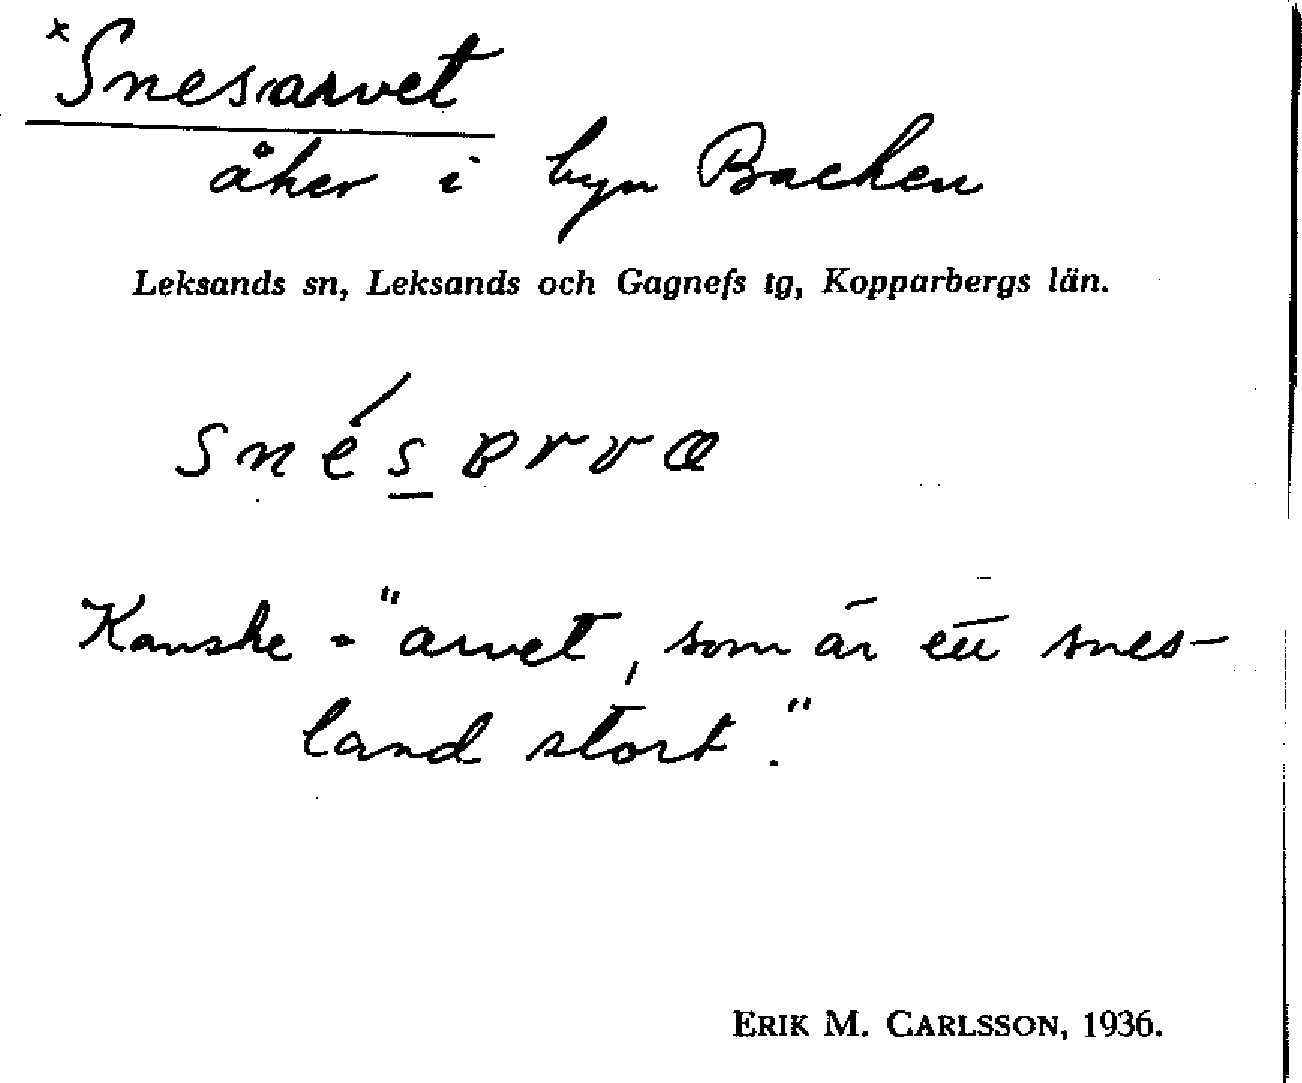 *Snesarvet
åker i byn Backen
Leksands sn, Leksands och Gagnefs tg, Kopparbergs län.
Kanske = "arvet, som är ett snes-
land stort."
ERIK M. CARLSSON, 1936.